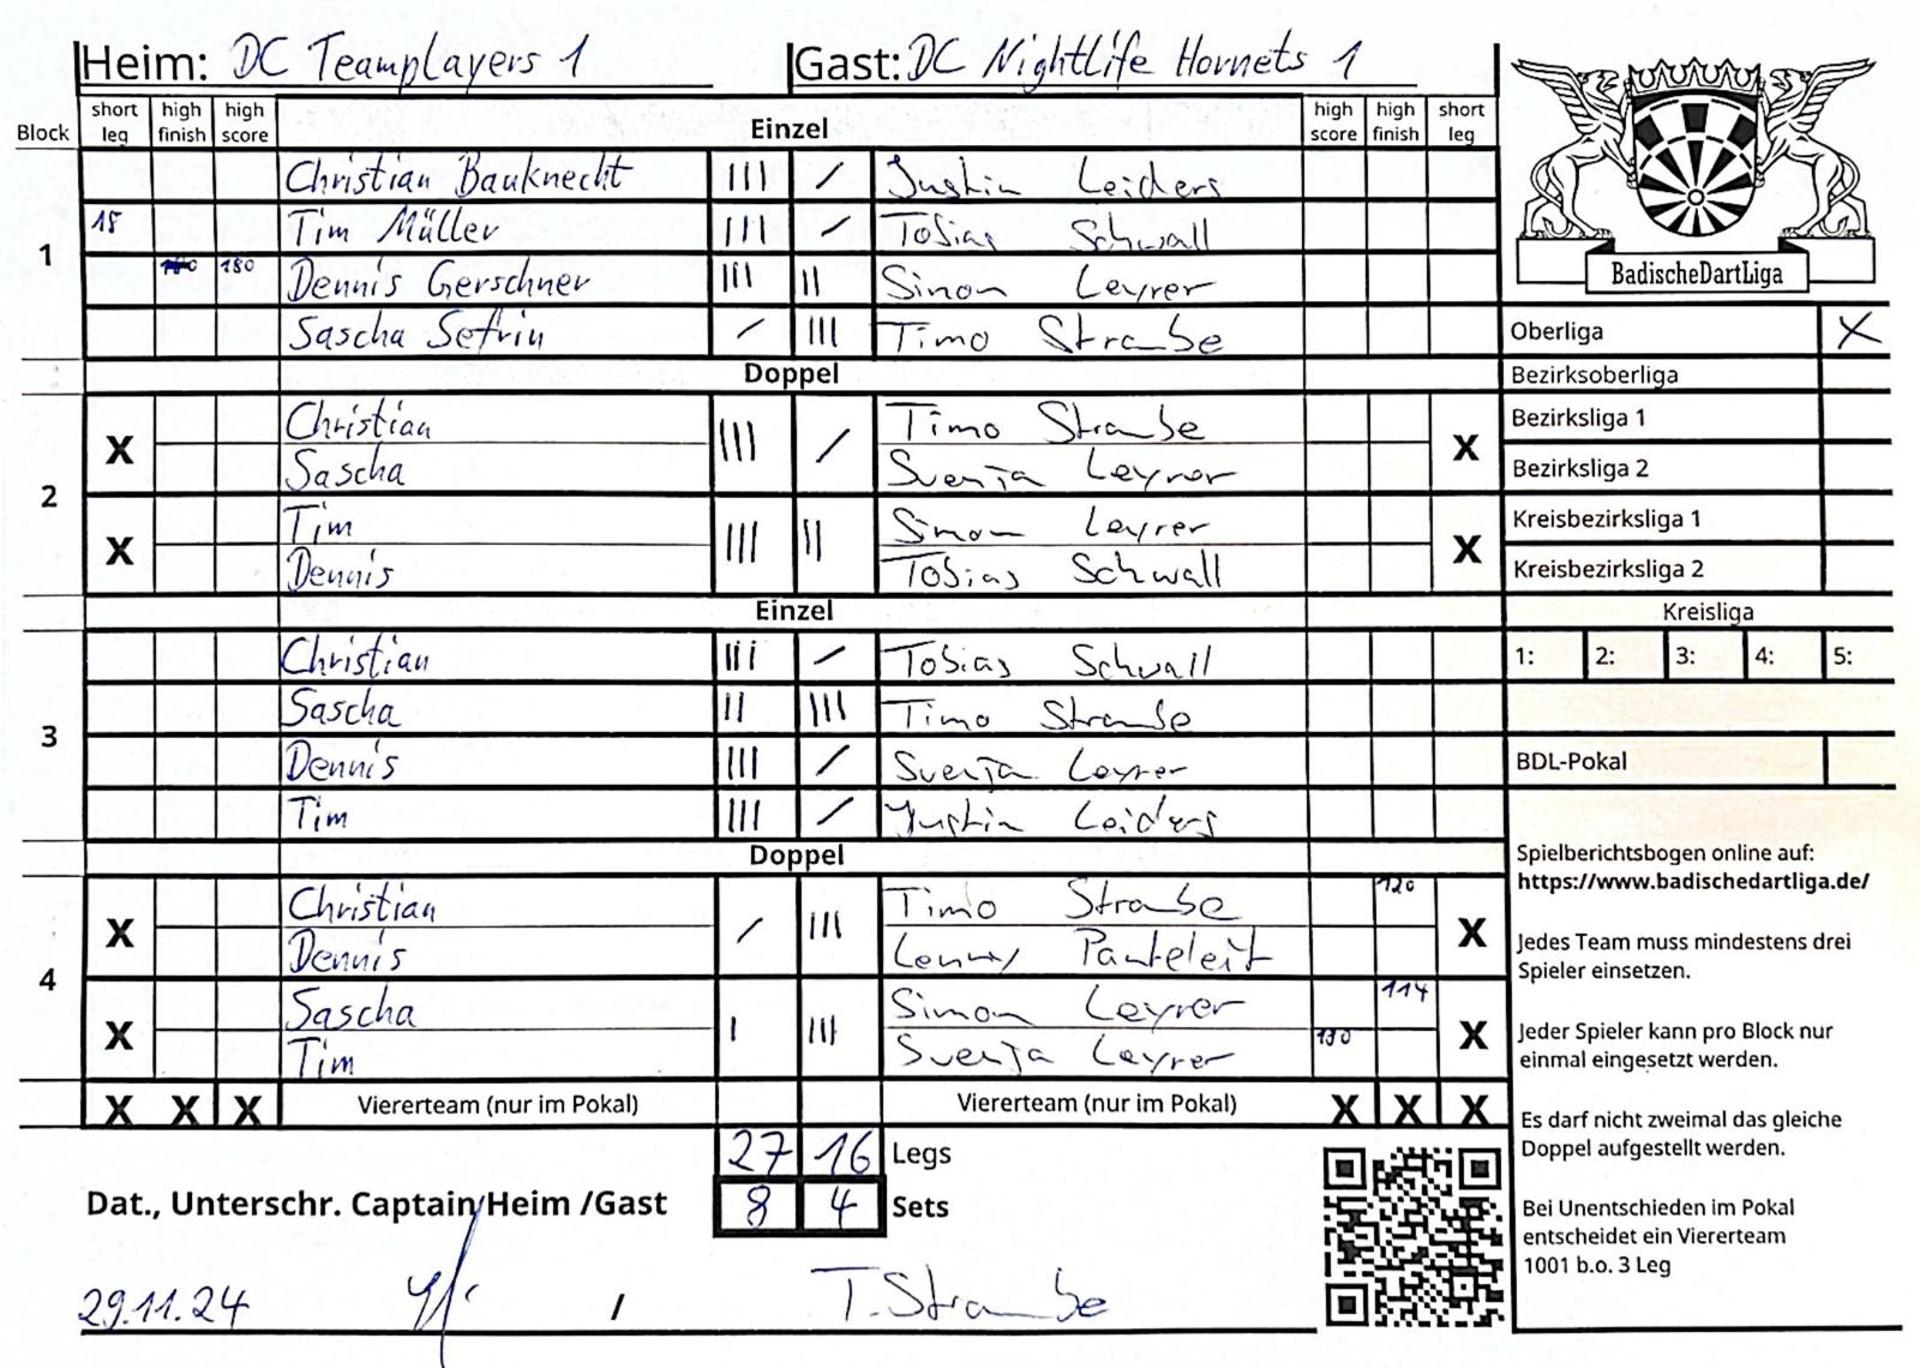 Heim: DC Teamplayers 1 Gast: DC Nightlife Hornets 1
Block short leg high finish high score Einzel high score high finish short leg
1
Christian Bauknecht III / Justin Leiders
18 Tim Müller III / Tobias Schwall
180 Dennis Gerschner III II Simon Leyrer
Sascha Sefrin / III Timo Straube
Doppel
2
X Christian III / Timo Straube X
Sascha Svenja Leyrer
X Tim III II Simon Leyrer X
Dennis Tobias Schwall
Einzel
3
Christian III / Tobias Schwall
Sascha II III Timo Straube
Dennis III / Svenja Leyrer
Tim III / Justin Leiders
Doppel
4
X Christian / III Timo Straube 120 X
Dennis Lenny Panteleit
X Sascha I III Simon Leyrer 114 X
Tim Svenja Leyrer
X X X Viererteam (nur im Pokal) Viererteam (nur im Pokal) X X X
27 16 Legs
Dat., Unterschr. Captain Heim /Gast 8 4 Sets
29.11.24 / T. Straube
BadischeDartLiga
Oberliga X
Bezirksoberliga
Bezirksliga 1
Bezirksliga 2
Kreisbezirksliga 1
Kreisbezirksliga 2
Kreisliga
1: 2: 3: 4: 5:
BDL-Pokal
Spielberichtsbogen online auf:
https://www.badischedartliga.de/
Jedes Team muss mindestens drei
Spieler einsetzen.
Jeder Spieler kann pro Block nur
einmal eingesetzt werden.
Es darf nicht zweimal das gleiche
Doppel aufgestellt werden.
Bei Unentschieden im Pokal
entscheidet ein Viererteam
1001 b.o. 3 Leg